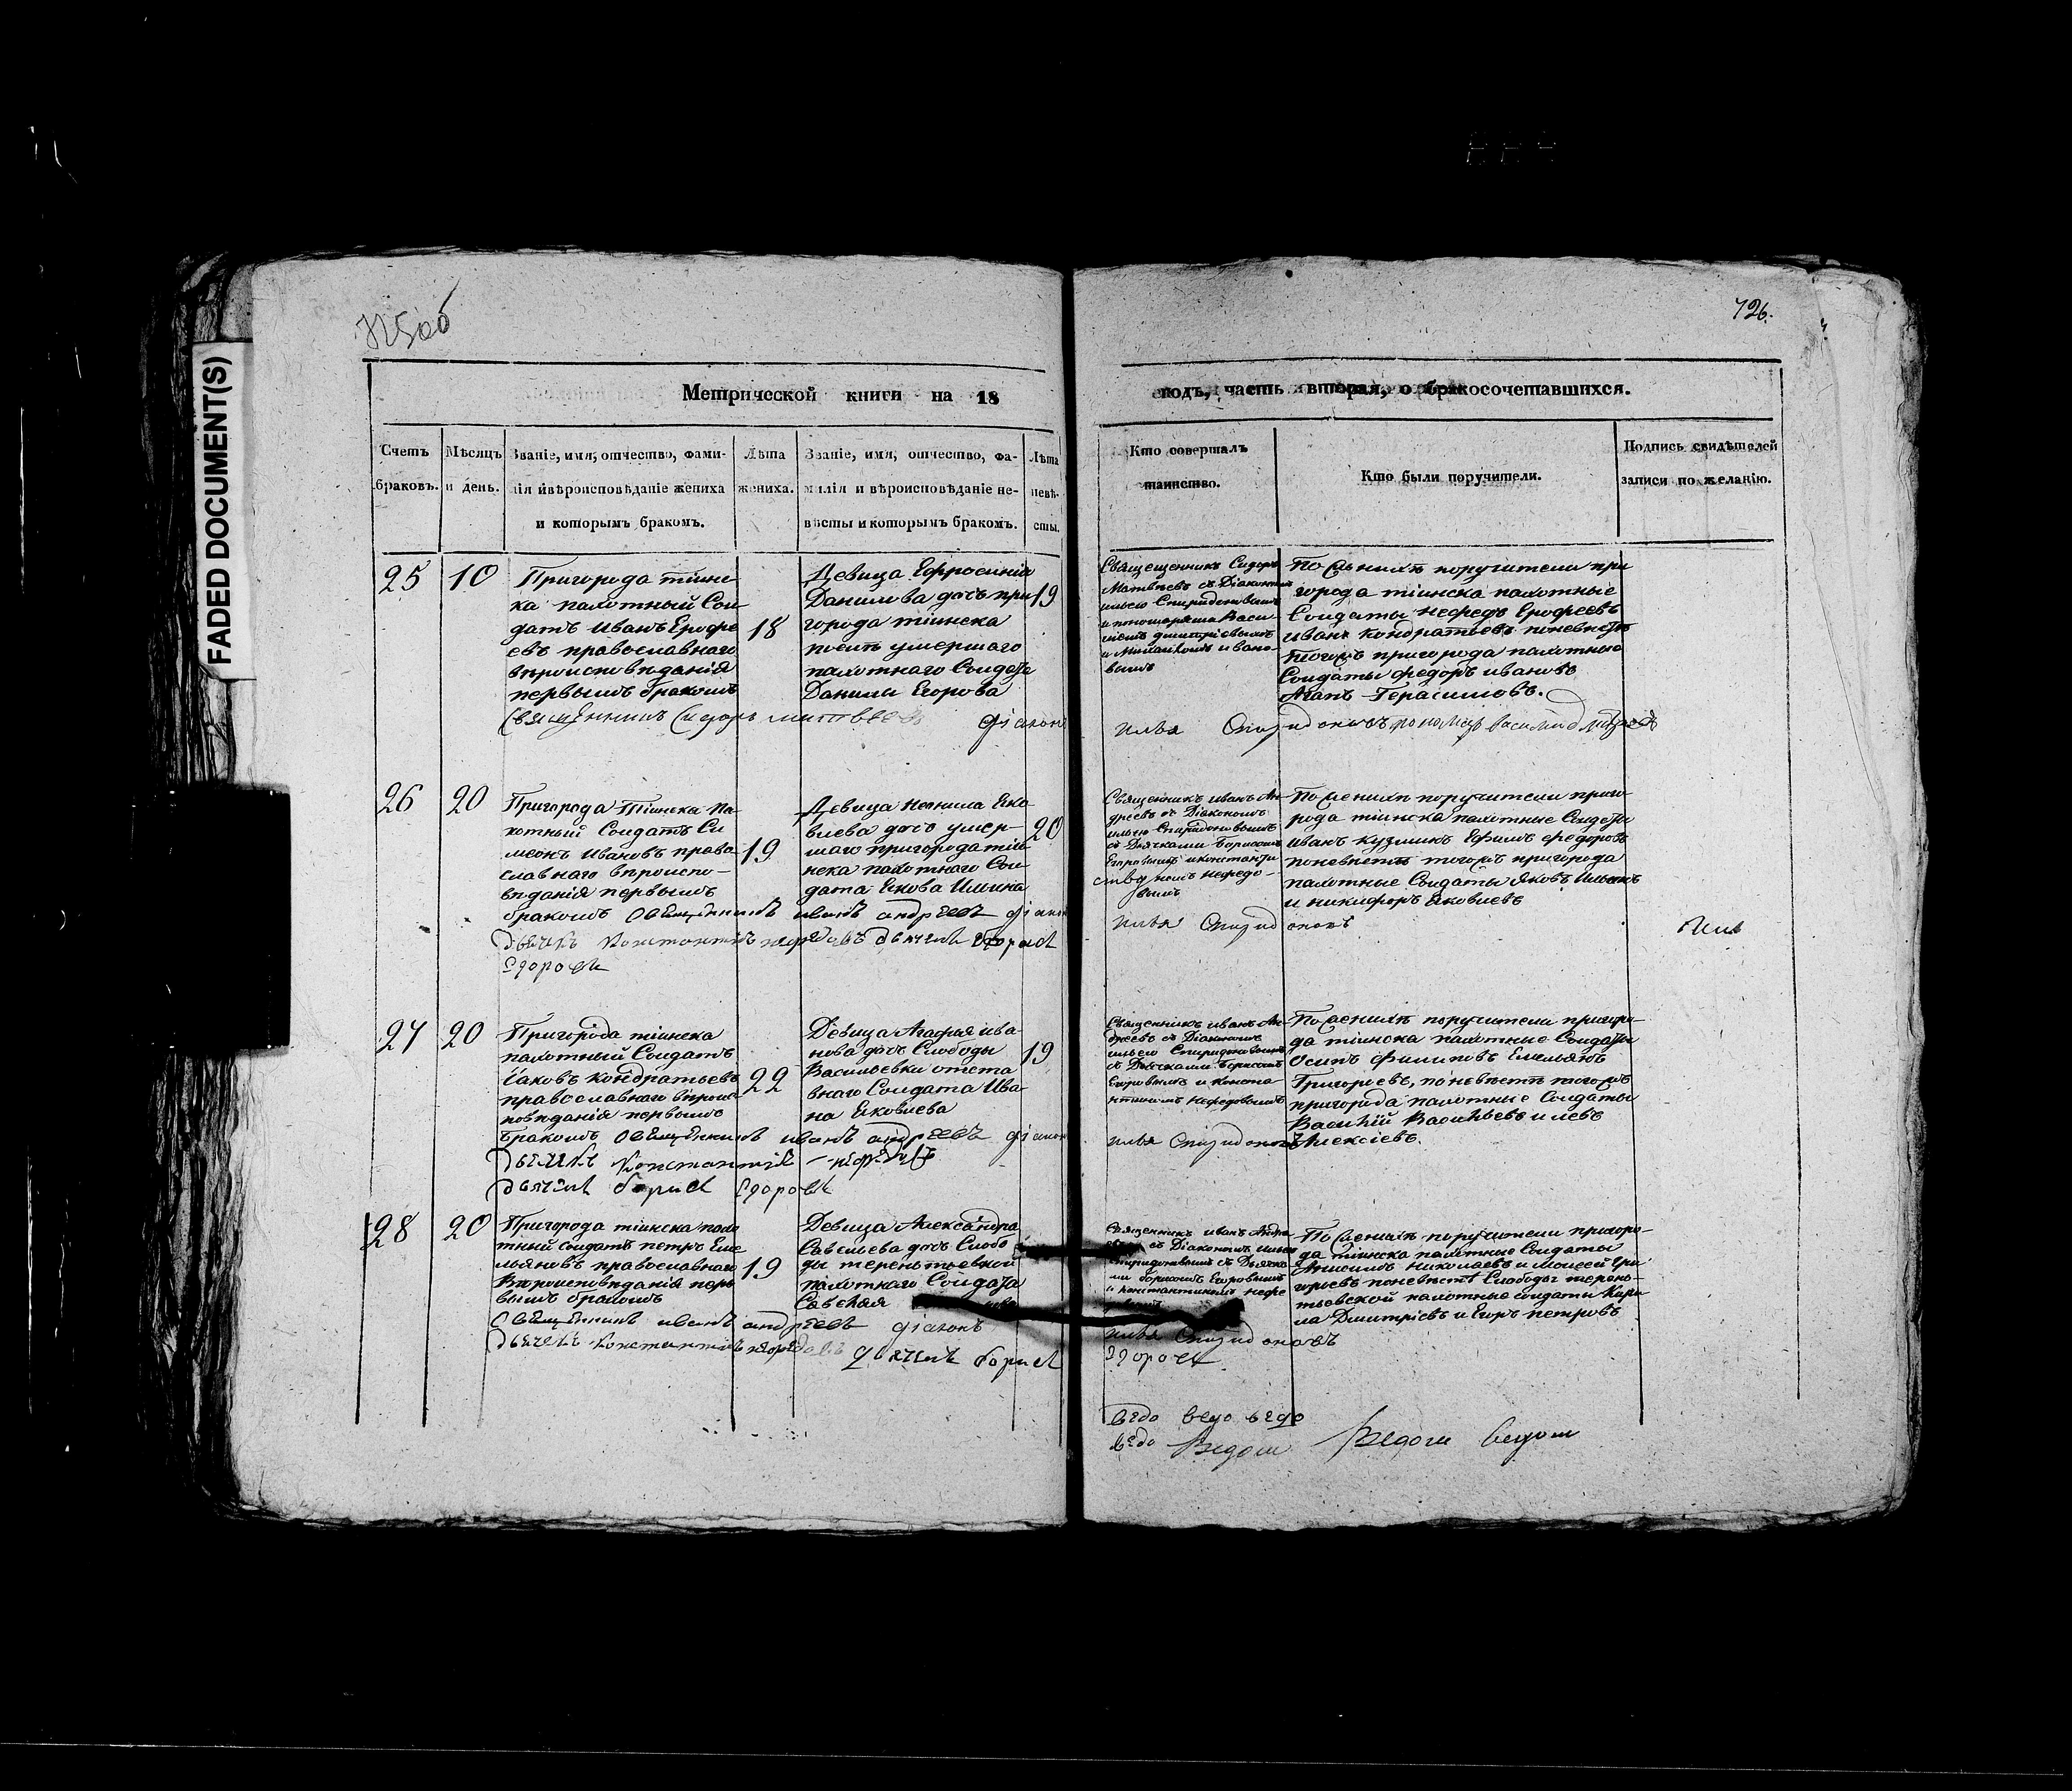 FADED DOCUMENT(S)
725об
726.
Метрической книги на 18
годъ, часть вторая, о бракосочетавшихся.
Счетъ браковъ.
Мѣсяцъ и день.
Званіе, имя, отчество, фами-
лія и вѣроисповѣданіе жениха
и которымъ бракомъ.
Лѣта
жениха.
Званіе, имя, отчество, фа-
милія и вѣроисповѣданіе не-
вѣсты и которымъ бракомъ.
Лѣта
невѣ-
сты.
Кто совершалъ
таинство.
Кто были поручители.
Подпись свидѣтелей
записи по желанію.
25
10
Пригорода тіинс
ка пахотный Сол
датъ Иванъ Ерофе
евъ православнаго
вѣроисповѣданія
первымъ бракомъ
18
Девица Ефросинія
Данилова дочь при
города тіинска
умершаго
пахотнаго Солдата
Данилы Егорова
19
Священникъ Сидоръ
Матвѣевъ съ Діакономъ
Ильею Спиридоновымъ
и пономарями Васи
ліемъ Дмитріевымъ
и Михаиломъ Ивано-
вымъ
По женихѣ поручители при
города тіинска пахотные
Солдаты Нефедъ Ерофеевъ
Иванъ Кондратьевъ поневѣстѣ
тогожъ пригорода пахотные
Солдаты Федоръ Ивановъ
Агапъ Герасимовъ.
Священникъ Сидоръ Матвѣевъ діаконъ
Илья Спиридоновъ пономарь Василий Дмитріевъ
26
20
Пригорода Тіинска па-
хотный Солдатъ Си
меонъ Ивановъ право-
славнаго вѣроиспо-
вѣданія первымъ
бракомъ
19
Девица Яко
влева дочь умер-
шаго пригорода тіи
нска пахотнаго Сол
дата Якова Ильина
20
Священникъ Иванъ Ан-
дреевъ съ Діакономъ
Ильею Спиридоновымъ
съ Дьячками Борисомъ
Егоровымъ и Константи
номъ Нефедо-
вымъ
По женихѣ поручители приго-
рода тіинска пахотные Солдаты
Иванъ Кузминъ Ефимъ Федоровъ
поневѣстѣ тогожъ пригорода
пахотные Солдаты Яковъ Ильинъ
и Никифоръ Яковлевъ
Священникъ Иванъ Андреевъ діаконъ
Илья Спиридоновъ
дьячекъ Константинъ Нефедовъ дьячекъ Борисъ
Егоровъ
27
20
Пригорода тіинска
пахотный Солдатъ
Іаковъ Кондратьевъ
православнаго вѣроис
повѣданія первымъ
бракомъ
22
Девица Агафья Ива-
нова дочь Слободы
Васильевки отста
внаго Солдата Ива-
на Яковлева
19
Священникъ Иванъ Ан-
дреевъ съ Діакономъ
Ильею Спиридоновымъ
съ Дьячками Борисомъ
Егоровымъ и Конста-
нтиномъ Нефедовымъ
По женихѣ поручители пригоро-
да тіинска пахотные Солдаты
Осипъ Филиповъ Емельянъ
Григорьевъ, поневѣстѣ тогожъ
пригорода пахотные Солдаты
Василій Васильевъ и Левъ
Алексіевъ.
Священникъ Иванъ Андреевъ діаконъ
Илья Спиридоновъ
дьячекъ Константинъ Нефедовъ
дьячекъ Борисъ Егоровъ
28
20
Пригорода тіинска пахо
тный солдатъ Петръ Еме
льяновъ православнаго
Вѣроисповѣданія перь
вымъ бракомъ
19
Девица Александра
Савельева дочь Слобо
ды терентьевской
пахотнаго Солдата
Савелья
Священникъ Иванъ Андре
съ Діакономъ Ильею
Спиридоновымъ съ Дьячка
ми Борисомъ Егоровымъ
и Константиномъ Нефе
По женихѣ поручители пригоро-
да тіинска пахотные Солдаты
Анисимъ Николаевъ и Моисей Гри
горьевъ поневѣстѣ Слободы терень-
тьевской пахотные солдаты Кири
ла Дмитріевъ и Егоръ Петровъ
Священникъ Иванъ Андреевъ діаконъ
Илья Спиридоновъ
дьячекъ Константинъ Нефедовъ дьячекъ Борисъ
Егоровъ